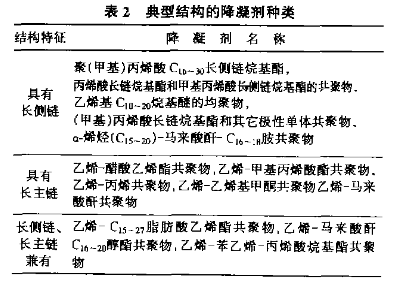 表 2 典型结构的降凝剂种类
结构特征 降 凝 剂 名 称
具有
长侧链
聚(甲基)丙烯酸C10~30长侧链烷基酯,
丙烯酸长链烷基酯和甲基丙烯酸长侧链烷基酯的共聚物、
乙烯基C18~20烷基醚的均聚物,
(甲基)丙烯酸长链烷基酯和其它极性单体共聚物、
α-烯烃(C15~20)-马来酸酐-C16~18胺共聚物
具有
长主链
乙烯-醋酸乙烯酯共聚物,乙烯-甲基丙烯酸酯共聚物、
乙烯-丙烯共聚物,乙烯-乙烯基甲酮共聚物乙烯-马来
酸酐共聚物
长侧链、
长主链
兼有
乙烯-C15~27脂肪酸乙烯酯共聚物,乙烯-马来酸酐
C16~20醇酯共聚物,乙烯-苯乙烯-丙烯酸烷基酯共聚
物